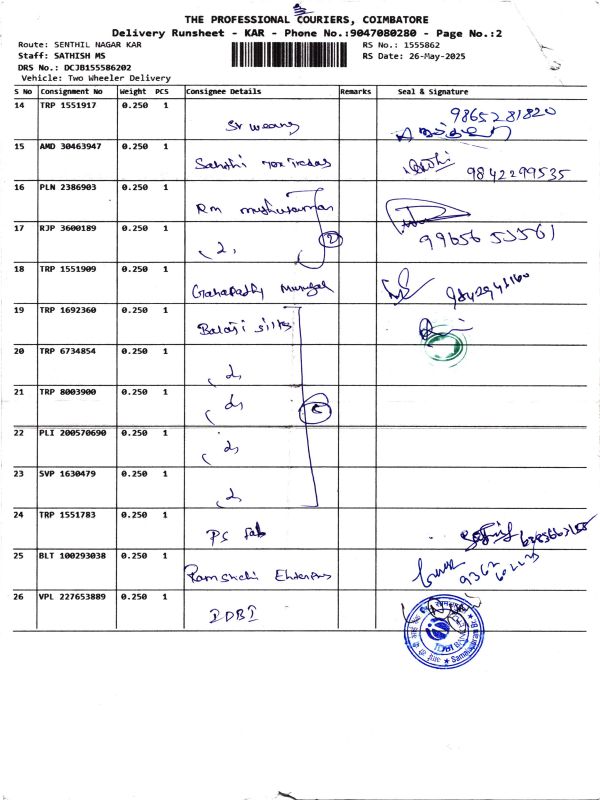 THE PROFESSIONAL COURIERS, COIMBATORE
Delivery Runsheet - KAR - Phone No.:9047080280 - Page No.:2
Route: SENTHIL NAGAR KAR
Staff: SATHISH MS
DRS No.: DCJB155586202
Vehicle: Two Wheeler Delivery
RS No.: 1555862
RS Date: 26-May-2025
S No Consignment No Weight PCS Consignee Details Remarks Seal & Signature
14 TRP 1551917 0.250 1 9865281820
15 AMD 30463947 0.250 1 Sakthi 9842299535
16 PLN 2386903 0.250 1 Rm
17 RJP 3600189 0.250 1 2 99656 53561
18 TRP 1551909 0.250 1 Ganapathy Murugal
19 TRP 1692360 0.250 1 Balaji silks
20 TRP 6734854 0.250 1
21 TRP 8003900 0.250 1
22 PLI 200570690 0.250 1
23 SVP 1630479 0.250 1
24 TRP 1551783 0.250 1 PS Fab
25 BLT 100293038 0.250 1 9362
26 VPL 227653889 0.250 1 IDBI
IDBI BANK